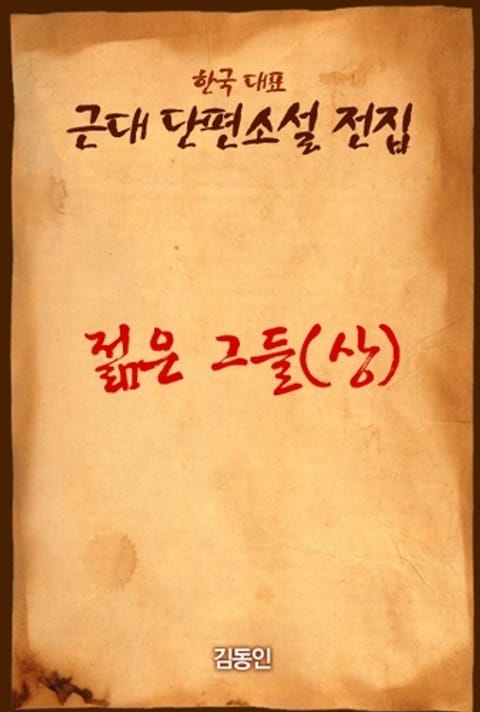 한국 대표
근대 단편소설 전집
젊은 그들(상)
김동인